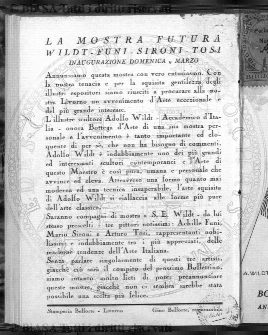 LA MOSTRA FUTURA
WILDT-FUNI-SIRONI-TOSI
INAUGURAZIONE DOMENICA 9 MARZO
Annunciamo questa mostra con vero entusiasmo. Con
la nostra tenacia e per la squisita gentilezza degli
illustri espositori siamo riusciti a procurare alla nostra
Livorno un avvenimento d'Arte eccezionale e
del più grande interesse.
L'illustre scultore Adolfo Wildt - Accademico d'Italia
- onora Bottega d'Arte di una sua mostra personale
e l'avvenimento è tanto importante ed eloquente
di per sè, che non ha bisogno di commenti.
Adolfo Wildt è indubbiamente uno dei più grandi
ed interessanti scultori contemporanei e l'Arte di
questo Maestro è così pura, umana e personale che
avvince ed eleva. Attraverso una forma quanto mai
moderna ed una tecnica insuperabile, l'arte squisita
di Adolfo Wildt si riallaccia alle forme più pure
dell'arte classica.
Saranno compagni di mostra a S. E. Wildt - da lui
stesso prescelti - tre pittori notissimi: Achille Funi,
Mario Sironi e Arturo Tosi, rappresentanti nobilissimi
e indubbiamente tra i più apprezzati, delle
tendenze dell'Arte Italiana.
Senza parlare singolarmente di questi tre artisti,
giacchè ciò sarà il compito del prossimo Bollettino,
siamo intanto molto lieti di poter preannunciare
queste mostre, giacchè non ci sembra sarebbe stata
possibile una scelta più felice.
Stamperia Belforte - Livorno Gino Belforte, responsabile